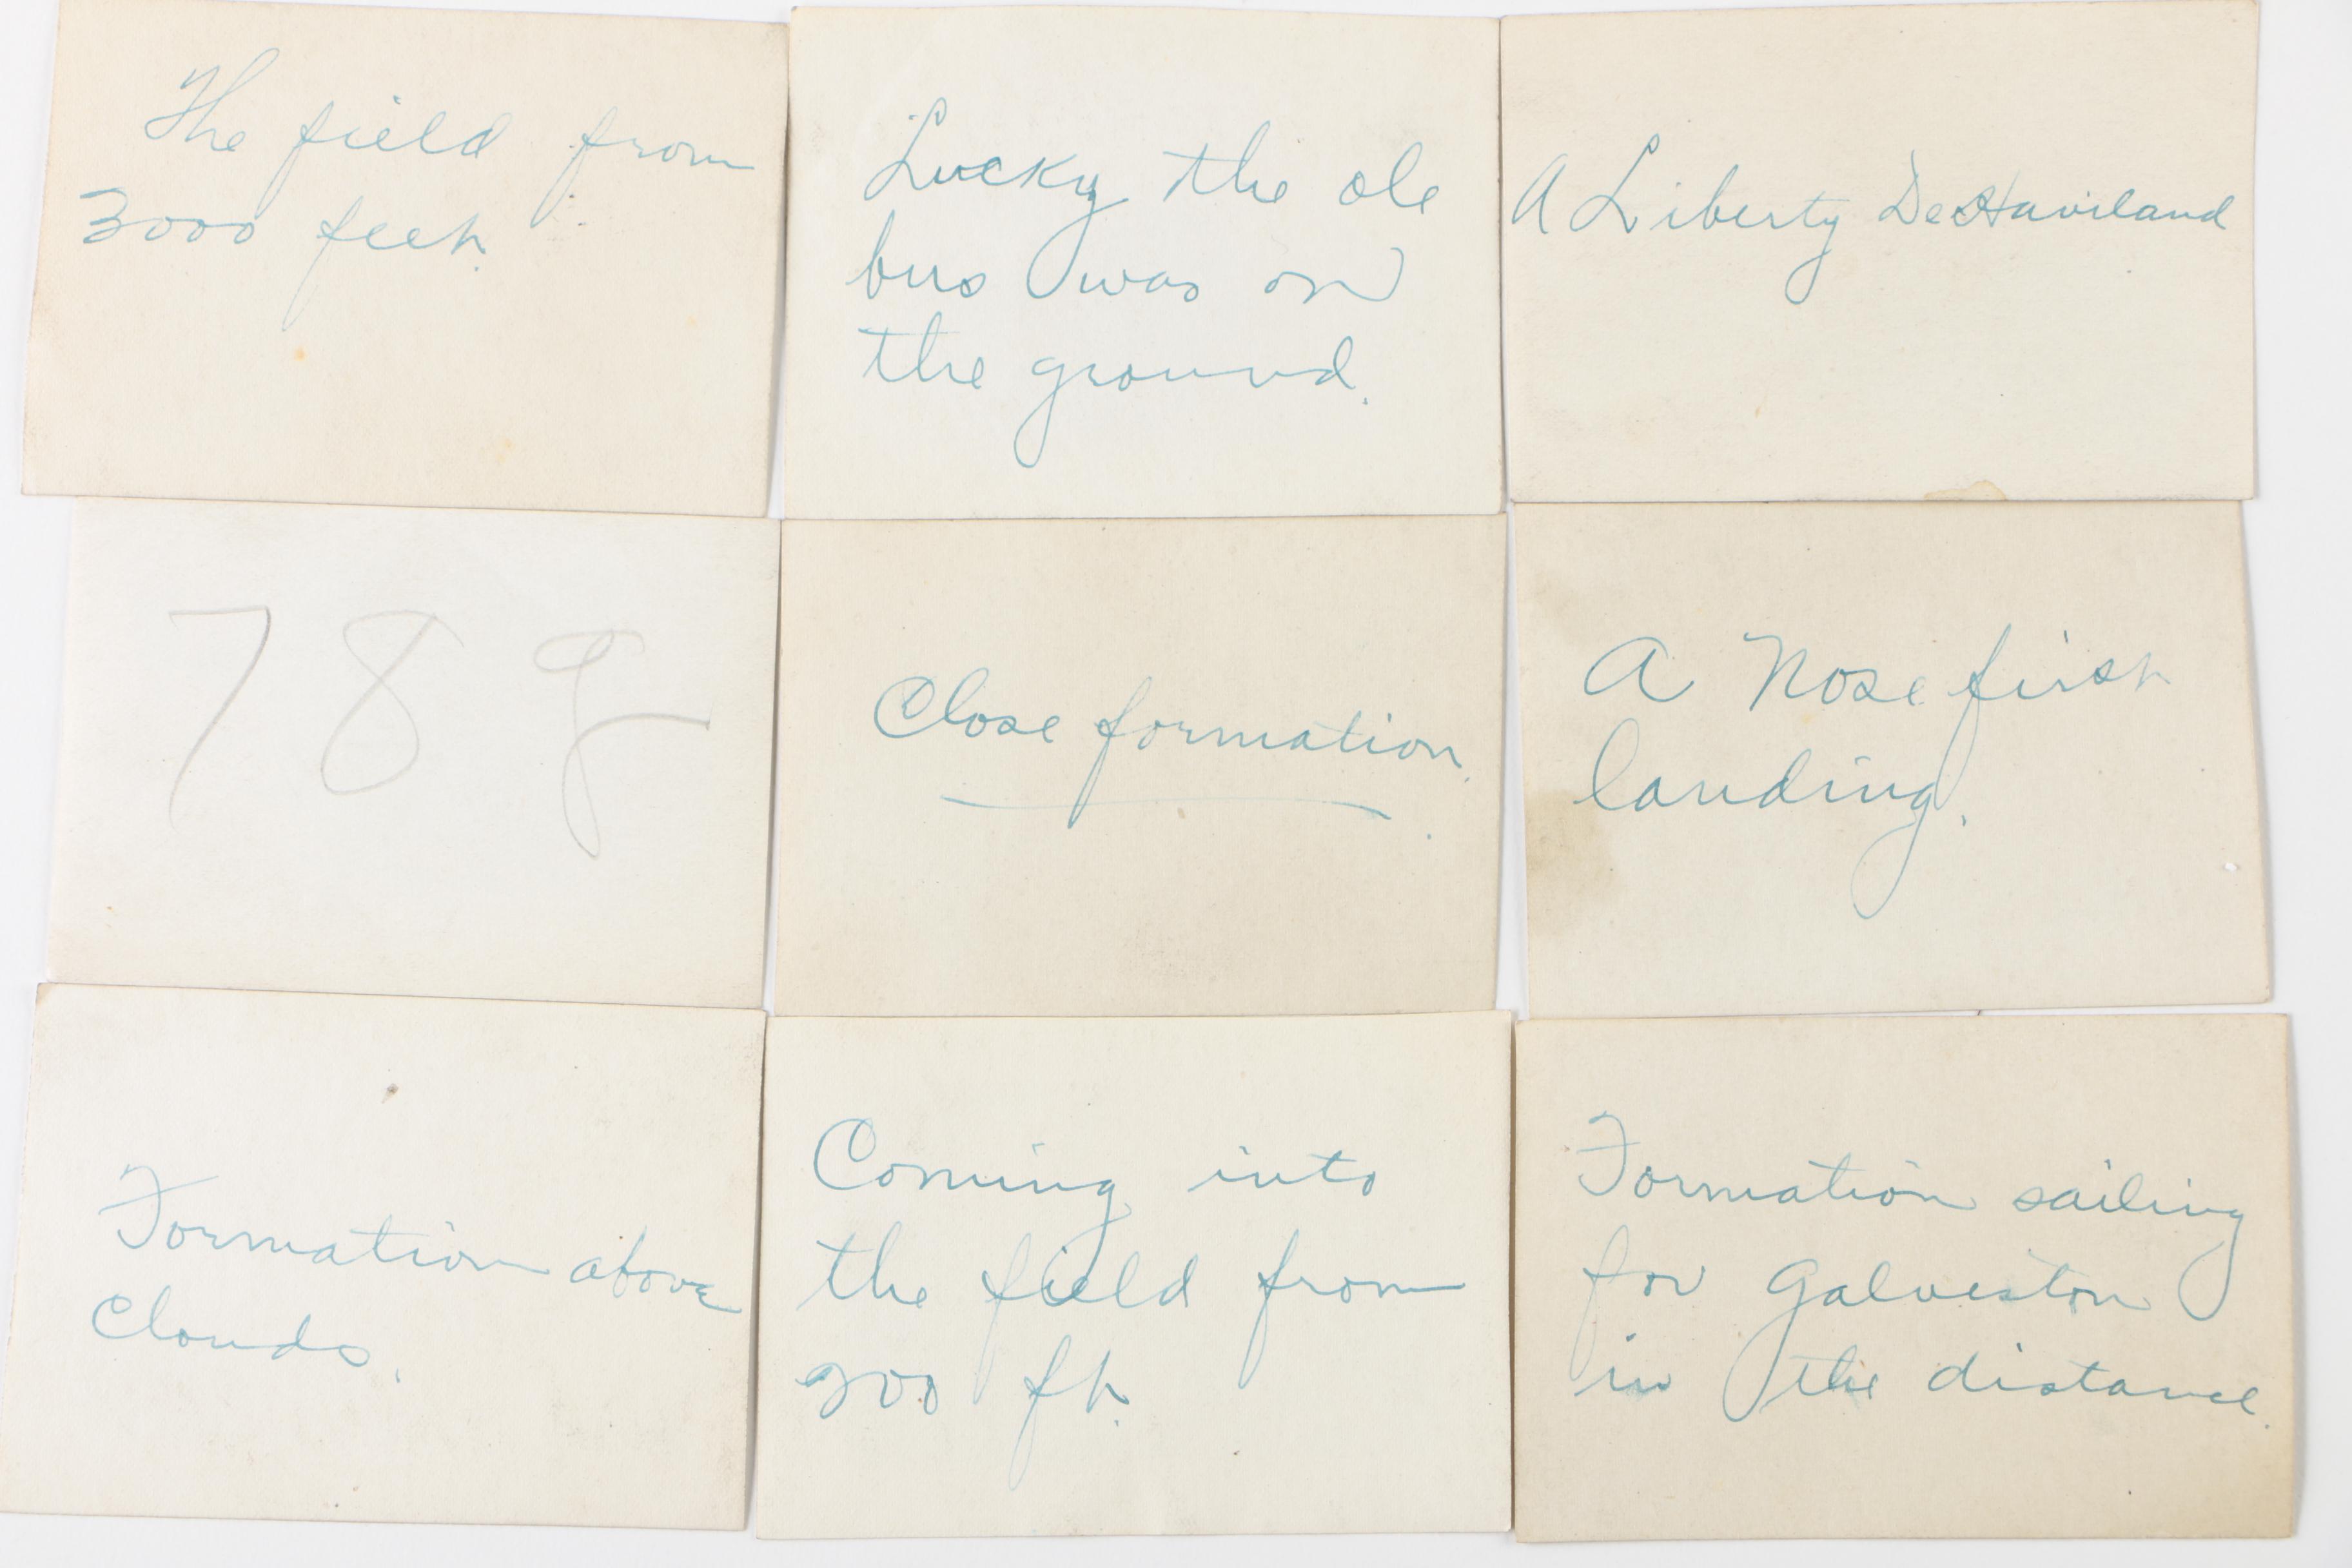 The field from
3000 feet.
Lucky the ole
bus was on
the ground.
A Liberty DeHaviland
789
Close formation.
A Nose first
landing.
Formation above
Clouds.
Coming into
the field from
200 ft.
Formation sailing
for Galveston
in the distance.